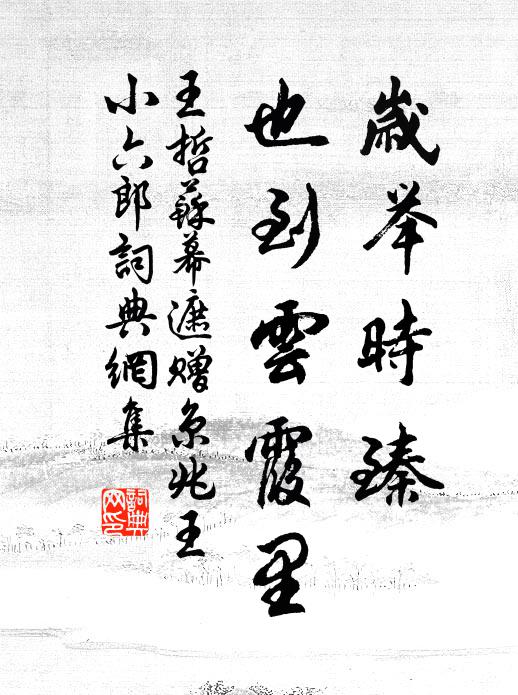 歲举時臻
也到雲霞里
王哲蘇幕遮赠京兆王
小六郎詞典網集
詞典
网印